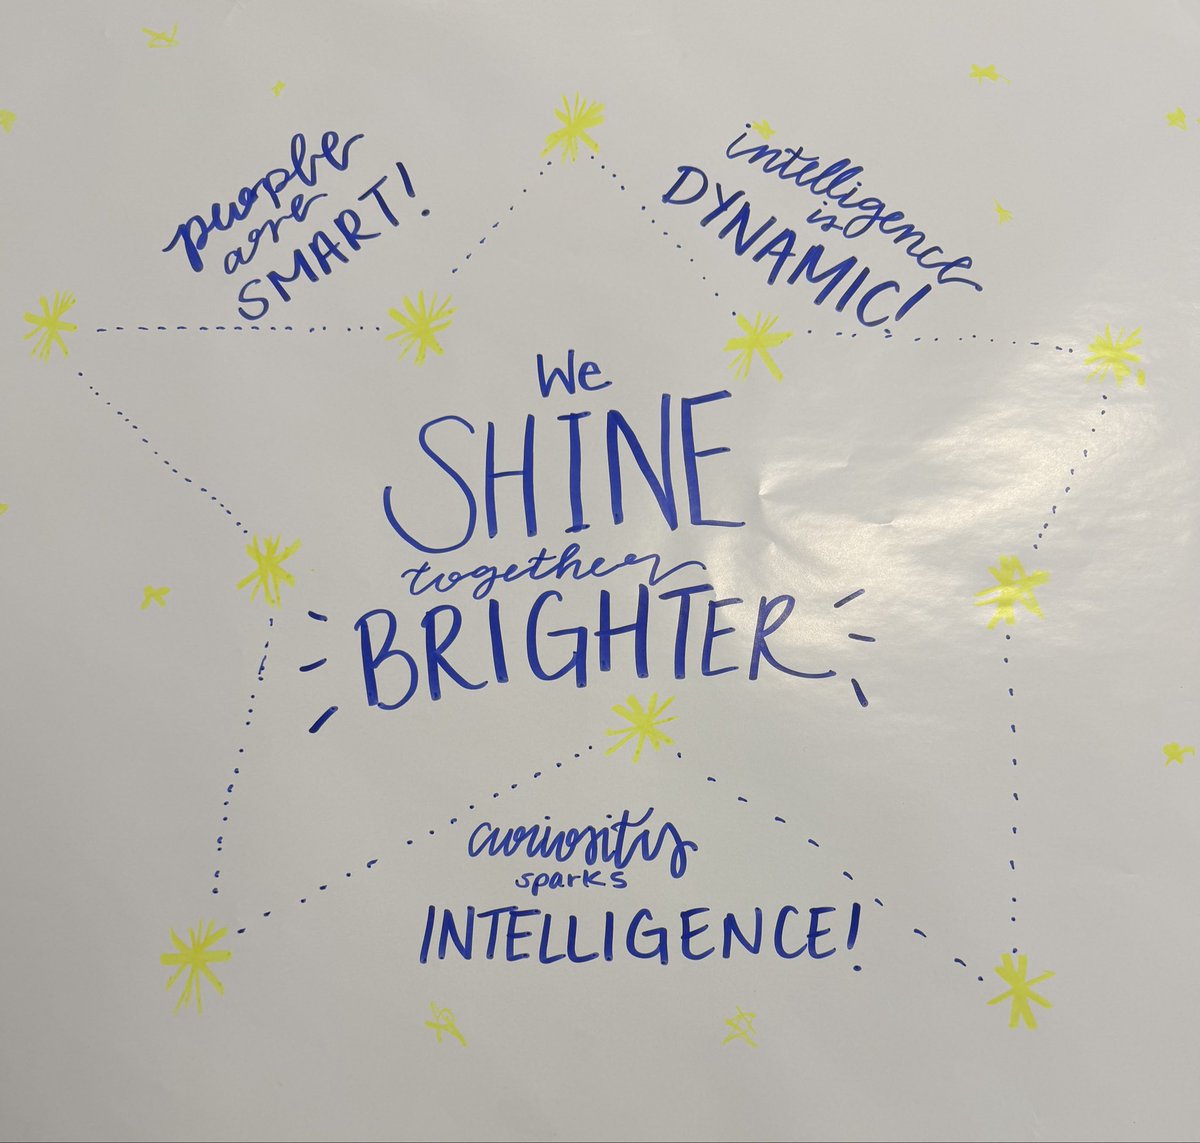 people
are
SMART!
intelligence
is
DYNAMIC!
We
SHINE
together
BRIGHTER
curiosity
sparks
INTELLIGENCE!